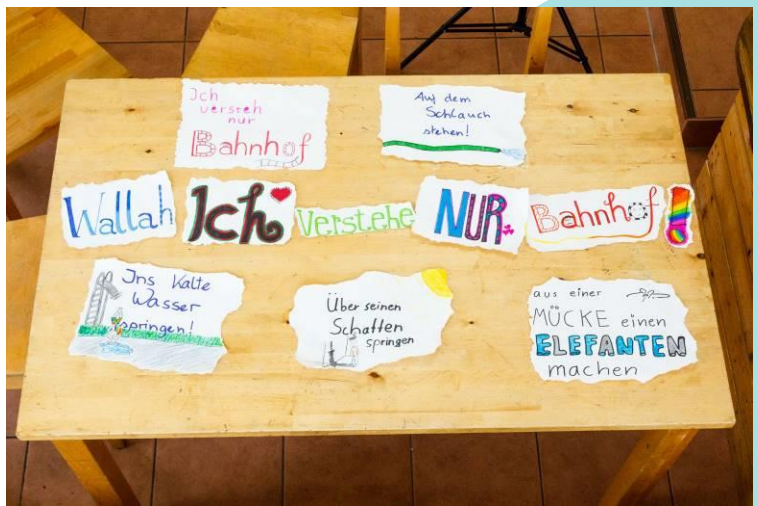 Ich
versteh
nur
Bahnhof
Auf dem
Schlauch
stehen!
Wallah Ich Verstehe NUR Bahnhof!
Ins Kalte
Wasser
springen!
Über seinen
Schatten
springen
aus einer
MÜCKE einen
ELEFANTEN
machen